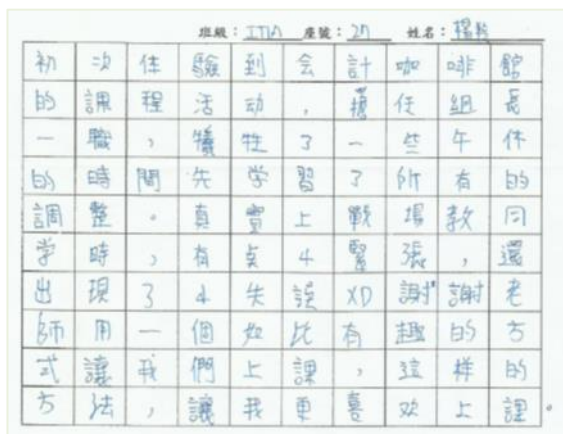 班級：ITIA 座號：27 姓名：楊
初次体驗到会計咖啡館
的課程活动，擔任組長
一職，犧牲了一些午休
的時間先学習了所有的
調整。真實上戰場教同
学時，有点小緊張，還
出現了小失誤XD謝謝老
師用一個如比有趣的方
式讓我們上課，這样的
方法，讓我更喜欢上課。